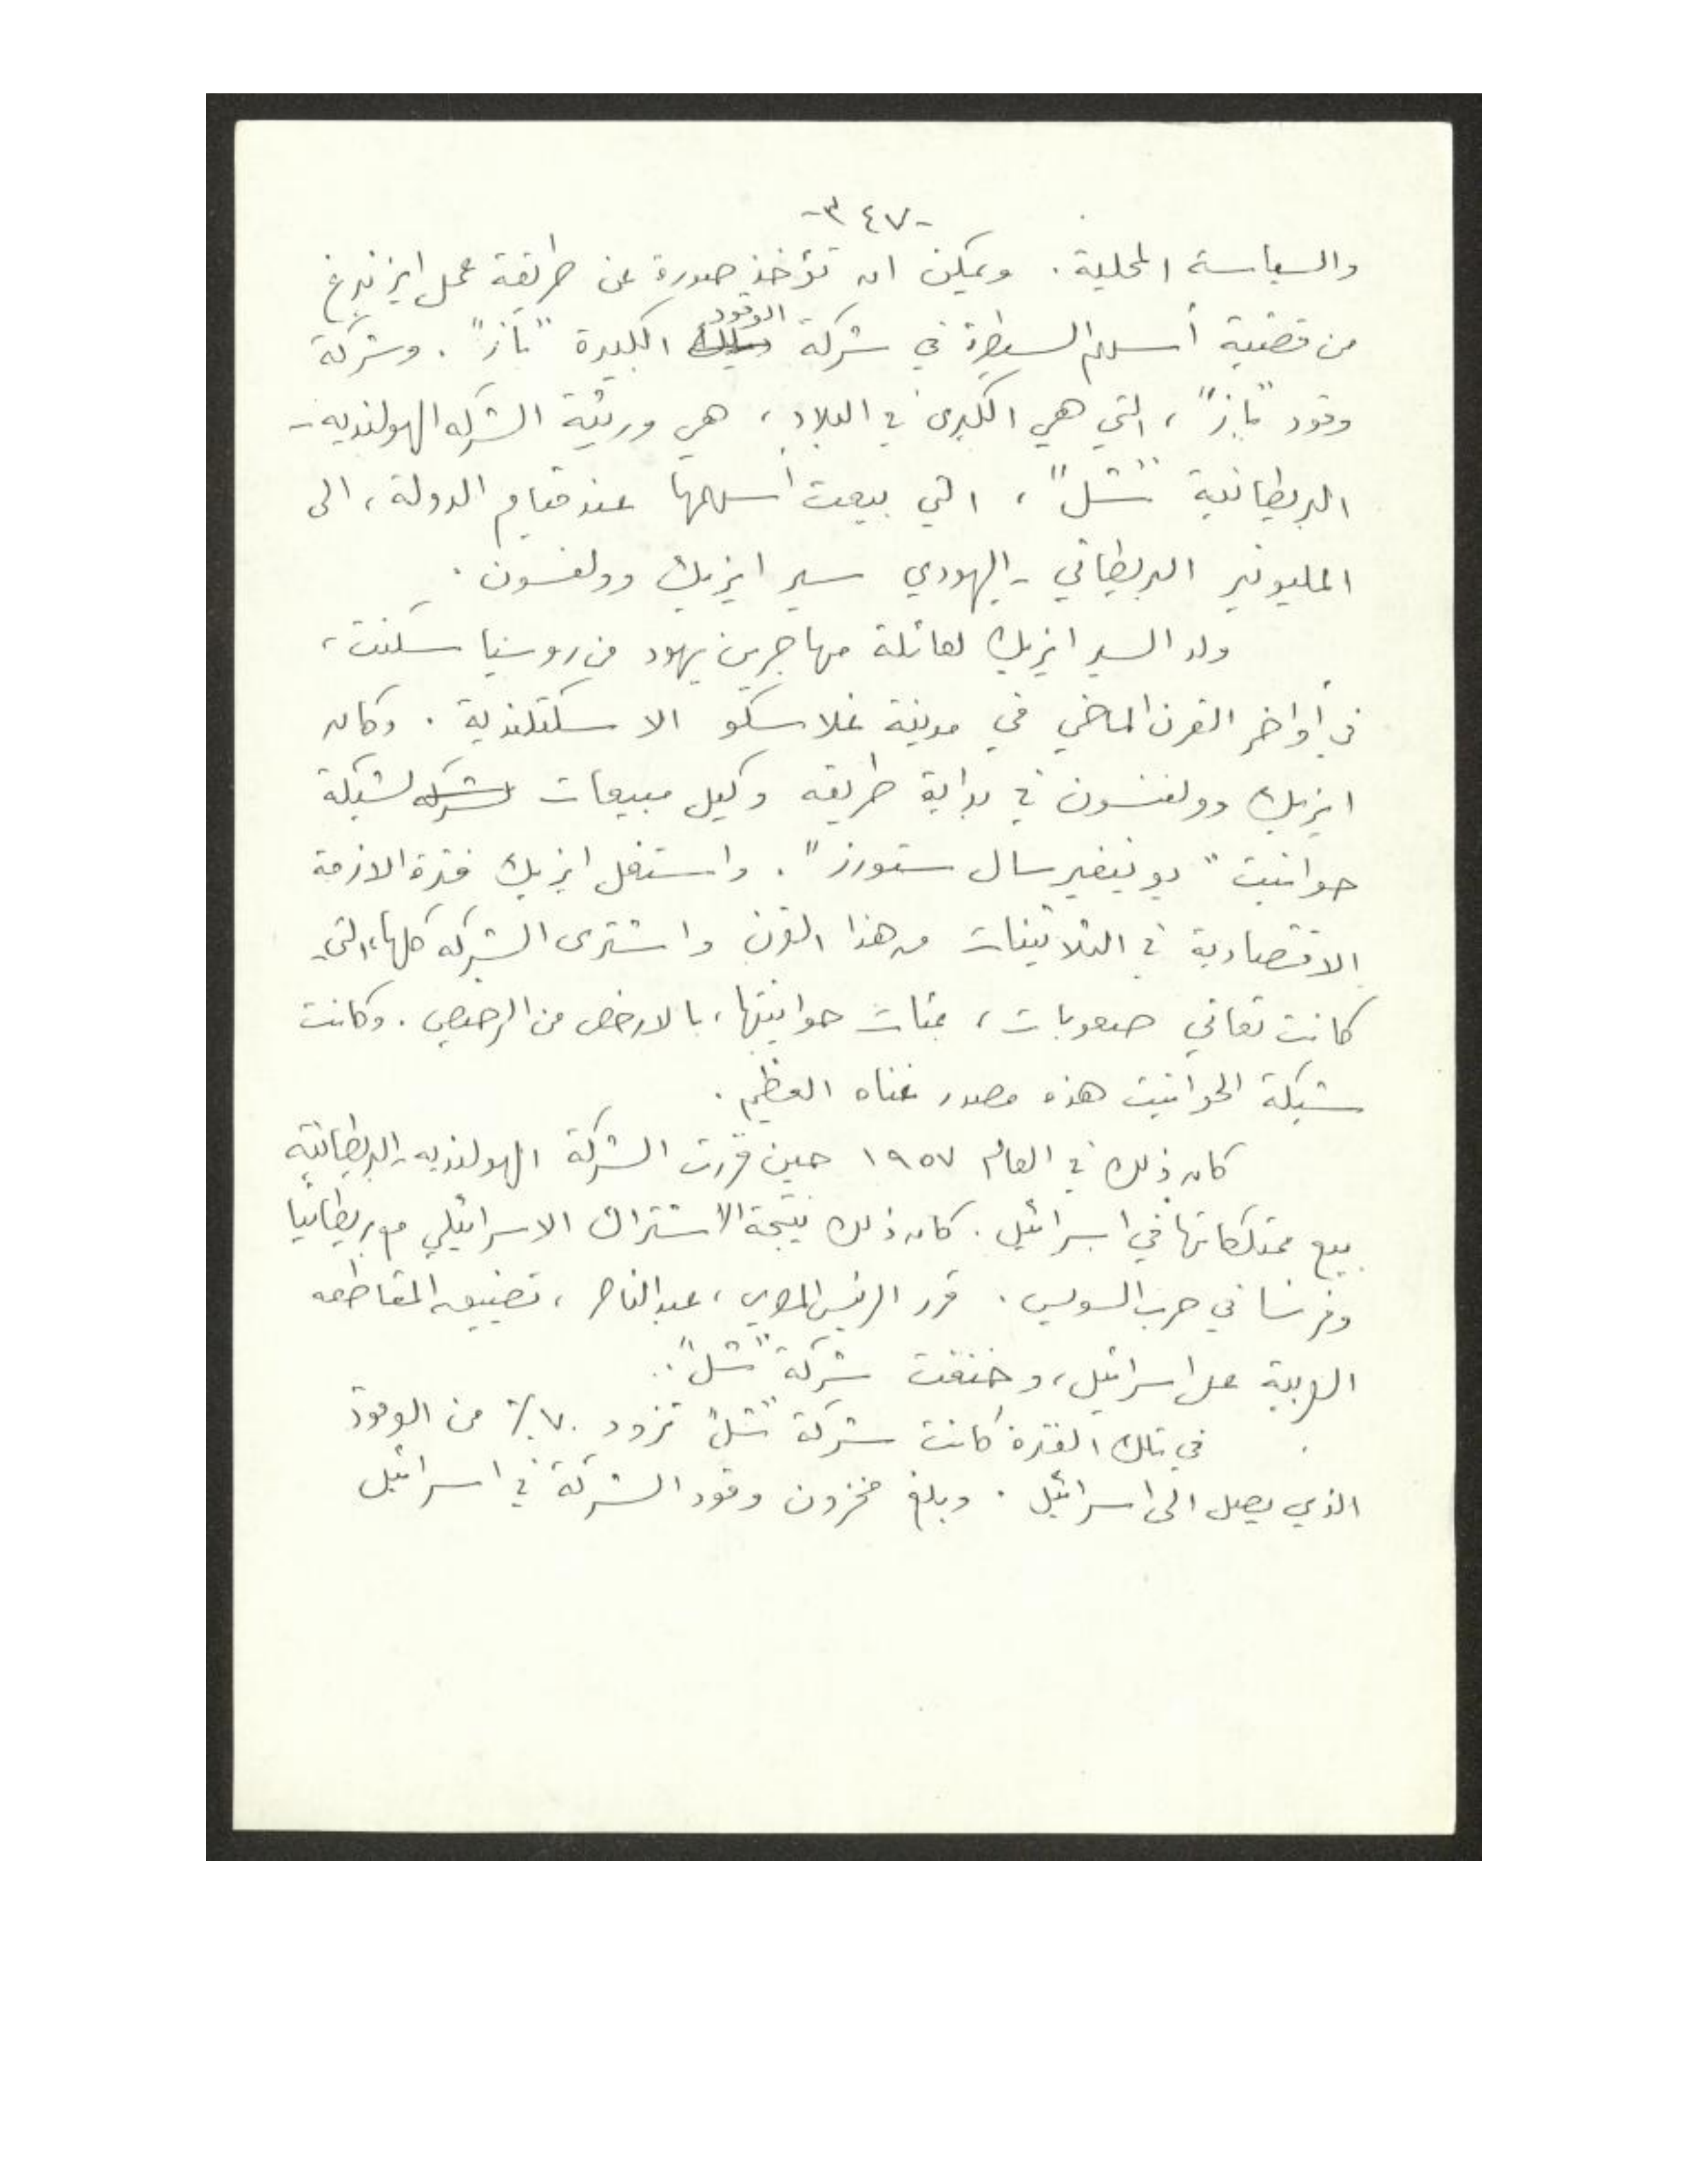 -٣٤٧-
والسياسة المحلية. ويمكن ان تؤخذ صورة عن طريقة عمل ايزنبرغ
من قضية أسهم السيطرة في شركة الوقود الكبيرة "باز". وشركة
وقود "باز"، التي هي الكبرى في البلاد، هي وريثة الشركة الهولندية -
البريطانية "شل"، التي بيعت أسهمها عند قيام الدولة، الى
المليونير البريطاني - اليهودي سير ايزيك وولفسون.
ولد السير ايزيك لعائلة مهاجرين يهود من روسيا سكنت،
في أواخر القرن الماضي في مدينة غلاسكو الاسكتلندية. وكان
ايزيك وولفسون في بداية طريقه وكيل مبيعات لشركة لشبكة
حوانيت "يونيفيرسال ستورز". واستغل ايزيك فترة الازمة
الاقتصادية في الثلاثينات من هذا القرن واشترى الشركة كلها، التي
كانت تعاني صعوبات، بمئات حوانيتها، بالارخص من الرخيص. وكانت
شبكة الحوانيت هذه مصدر غناه العظيم.
كان ذلك في العام ١٩٥٧ حين قررت الشركة الهولندية - البريطانية
بيع ممتلكاتها في اسرائيل. كان ذلك نتيجة الاشتراك الاسرائيلي مع بريطانيا
وفرنسا في حرب السويس. قرر الرئيس المصري، عبد الناصر، تضييق المقاطعة
العربية على اسرائيل، وخنقت شركة "شل".
في تلك الفترة كانت شركة "شل" تزود ٧٠٪ من الوقود
الذي يصل الى اسرائيل. وبلغ مخزون وقود الشركة في اسرائيل